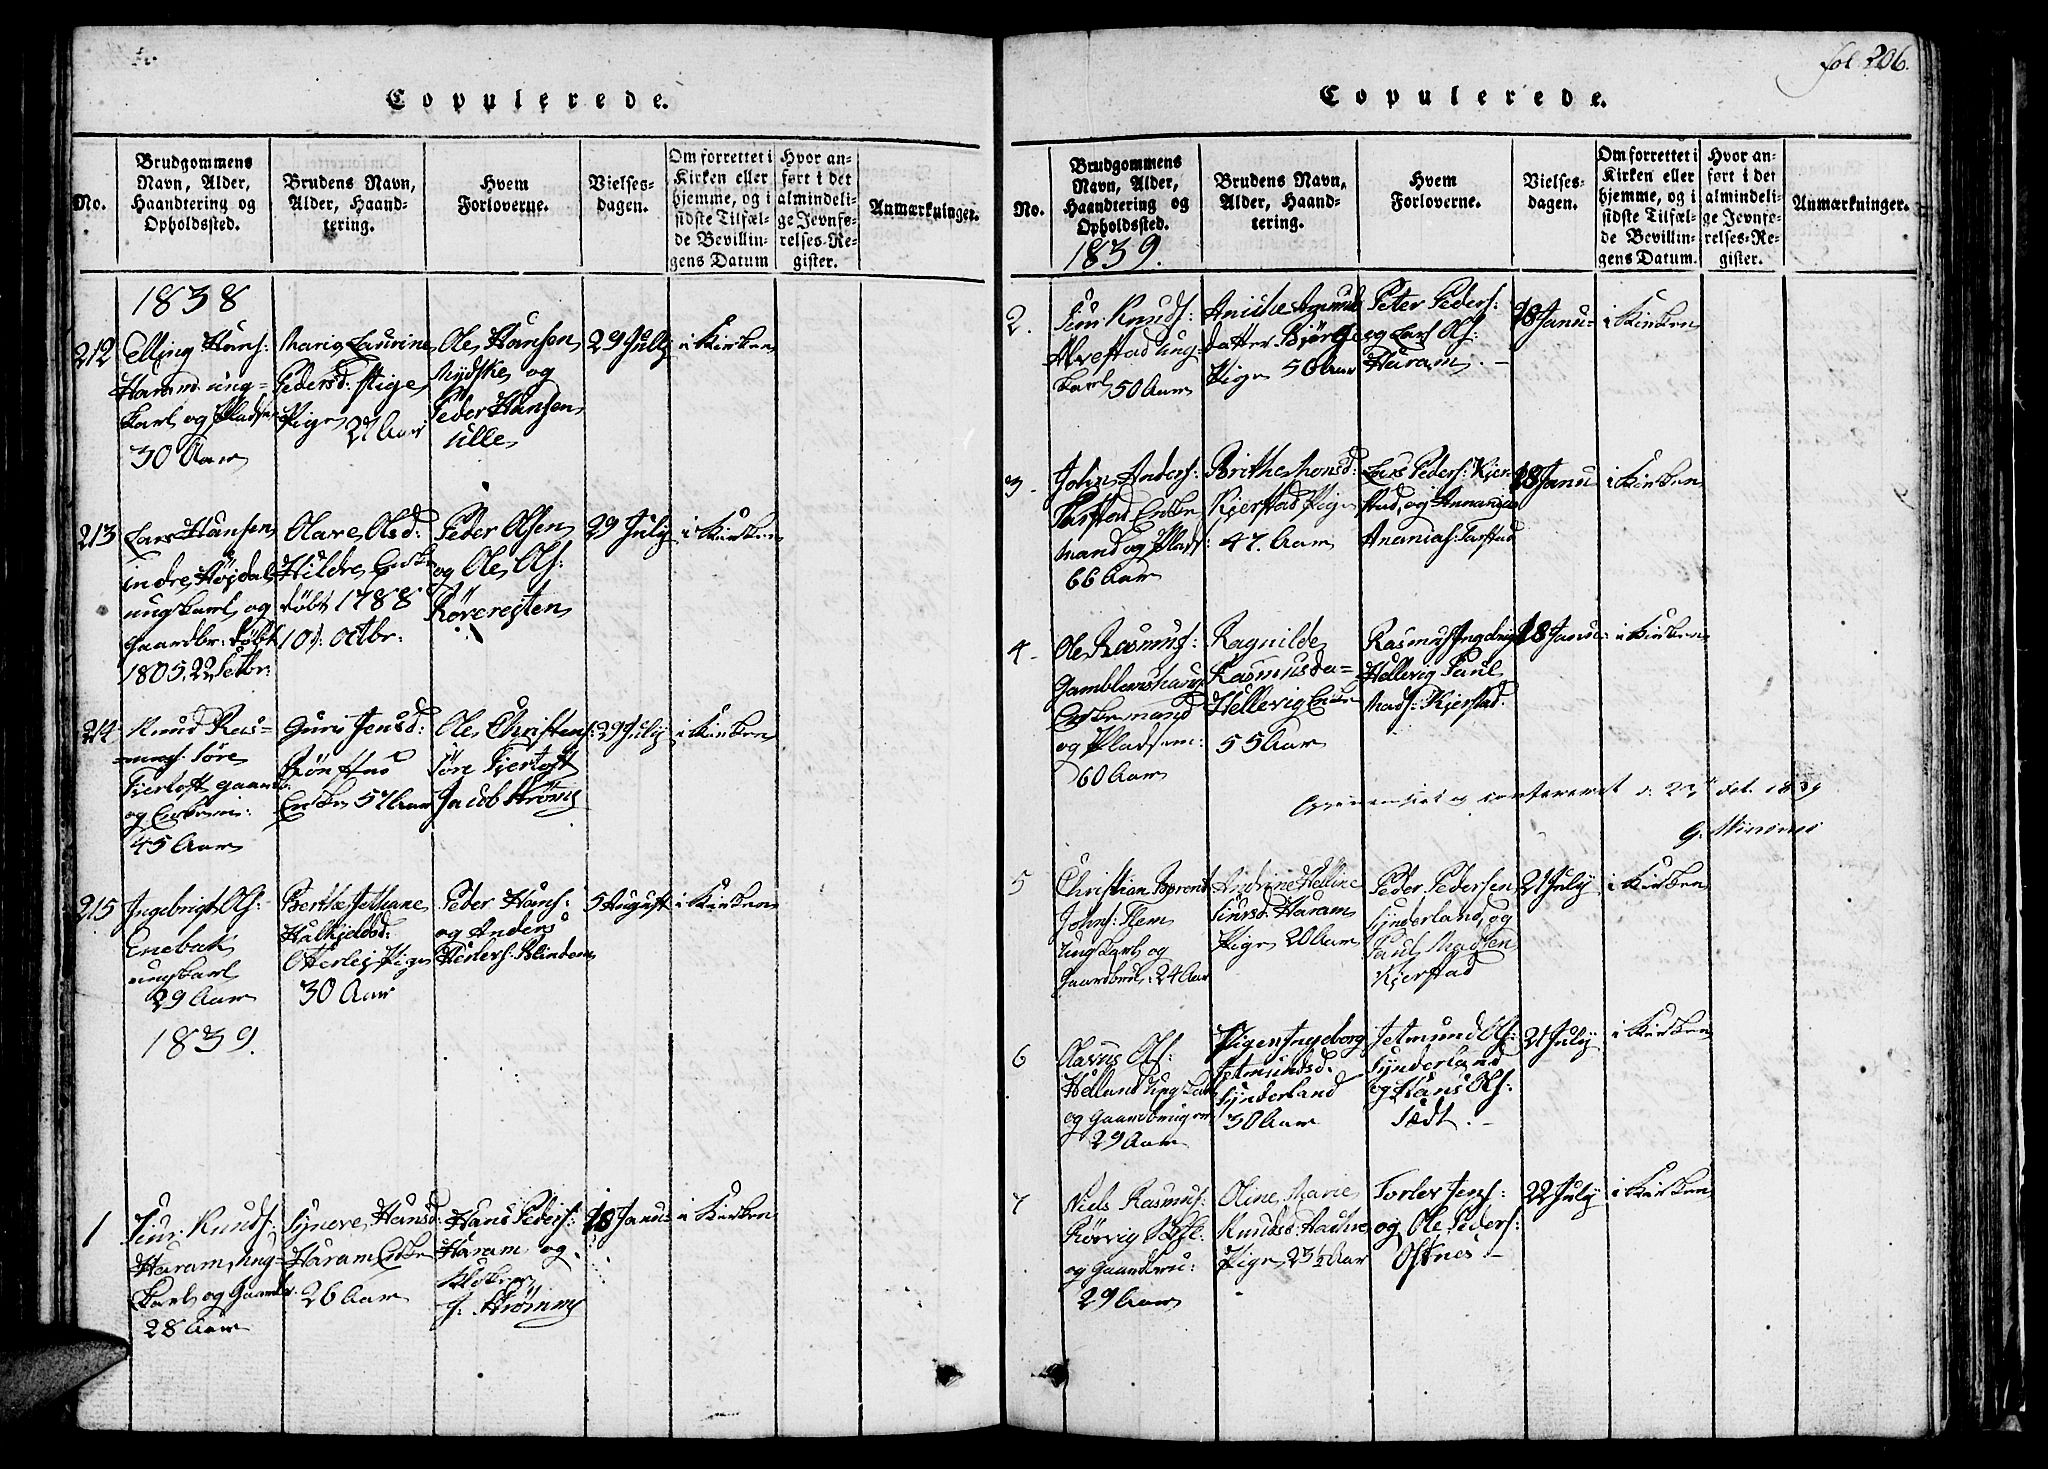 Copulerede.
No.
Brudgommens
Navn, Alder,
Haandtering og
Opholdssted.
Brudens Navn,
Alder, Haand-
tering.
Hvem
Forloverne.
Vielses-
dagen.
Om forrettet i
Kirken eller
hjemme, og i
sidste Tilfæl-
de Bevillin-
gens Datum
Hvor an-
ført i det
almindeli-
ge Jevnfø-
relses-Re-
gister.
Anmærkninger.
1838
212
Elling Hans:
Haram ung-
karl og Pladsm
30 Aar
Marie Laurine
Pedersd:
Pige 27 Aar
Ole Hansen
og
Peder Hansen
Ulle
29 July
i Kirken
213
Lars Hansen
indre Højdal
ungkarl og
Gaardbr: døbt
1805, 22 Setbr:
Olave Olsd:
Hildre Enke
døbt 1788
10d: Octbr:
Peder Olsen
og Ole Ols:
29 July
i Kirken
214
Knud Ras-
mus: søre
Fjertoft gaardb.
og Enkem:
45 Aar
Guri Jensd:
Enke 57 Aar
Ole Christens:
søre Fjertoft
Jacob Strømy
29 July
i Kirken
215
Ingebrigt Ols:
Enebak
ungkarl
29 Aar
Berthe Jethane
Halkjeldsd:
Otterlej Pige
30 Aar
Peder Hans:
og Anders
Peders: Blindem
5 August
i Kirken
1839.
1
Siur Knuds:
Haram, Ung-
karl og Gaardbr.
28 Aar
Synove Hansd:
Haram Enke
26 Aar
Hans Peders:
Haram og
Kloker
J. Strømmy
28 Janu:
i Kirken
fol 206.
Copulerede.
No.
Brudgommens
Navn, Alder,
Haandtering og
Opholdssted.
1839.
Brudens Navn,
Alder, Haand-
tering.
Hvem
Forloverne.
Vielses-
dagen.
Om forrettet i
Kirken eller
hjemme, og i
sidste Tilfæl-
de Bevillin-
gens Datum.
Hvor an-
ført i det
almindeli-
ge Jevnfø-
relses-Re-
gister.
Anmærkninger.
2.
Siur Knuds:
Alvestad ung-
karl 50 Aar
Aniche Amunds
datter Bjørge
Pige 50 Aar
Peter Peders:
og Lars Ols:
Haram. -
28 Janu-
i Kirken
3.
John Anders:
Tarstad Enke
mand og Plads:
66 Aar
Brithe Jhonsd:
Kjerstad Pige
47. Aar
Lars Peders: Kjer-
stad, og Annanias
Ananias: Tarstad
28 Janu
i Kirken
4.
Ole Rasmus:
Gamblemshaug
Enkemand
og Pladsem:
60 Aar
Ragnilde
Rasmusda=
Hellevig Enke
55 Aar
Rasmus Ingebrigt
Hellevig Paul
Mads: Kjerstad.
28 Janu:
i Kirken
og confereret d: 23 Oct. 1839
5
Christian Bernt
Johns: Flem
Ungkarl og
Gaardbrul: 24 Aar
Andrine Helline
Siursd: Haram
Pige 20 Aar
Peder Pedersen
Synderland, og
Paul Madsen
Kjerstad
21 July
i Kirken
6
Rasmus Ols:
Helland Ung karl
og Gaardbruger
29 Aar
Pigen Ingeborg
Jetmundsd:
Synderland
30 Aar
Jetmund Ols:
Synderland
og Hans Ols:
Sædt. -
21 July
i Kirken
7
Niels Rasmus:
Rørvig
og Gaardbru:
29 Aar
Oline Marie
Knudsd:
Pige 23½ Aar
Torlev Jens:
og Ole Peders:
Ostnes -
22 July
i Kirken